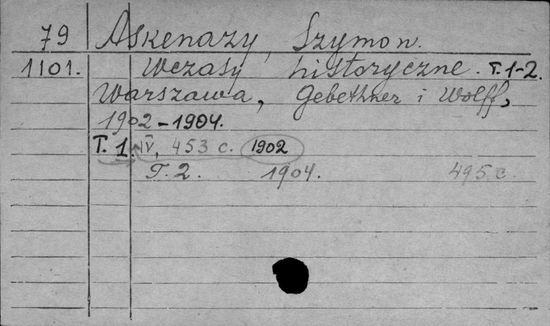 79 Askenazy, Szymon.
1101. Wczasy historyczne. T. 1-2.
Warszawa, Gebethner i Wolff,
1902-1904.
T. 1. IV, 453 c. 1902
T. 2. 1904. 495 c.